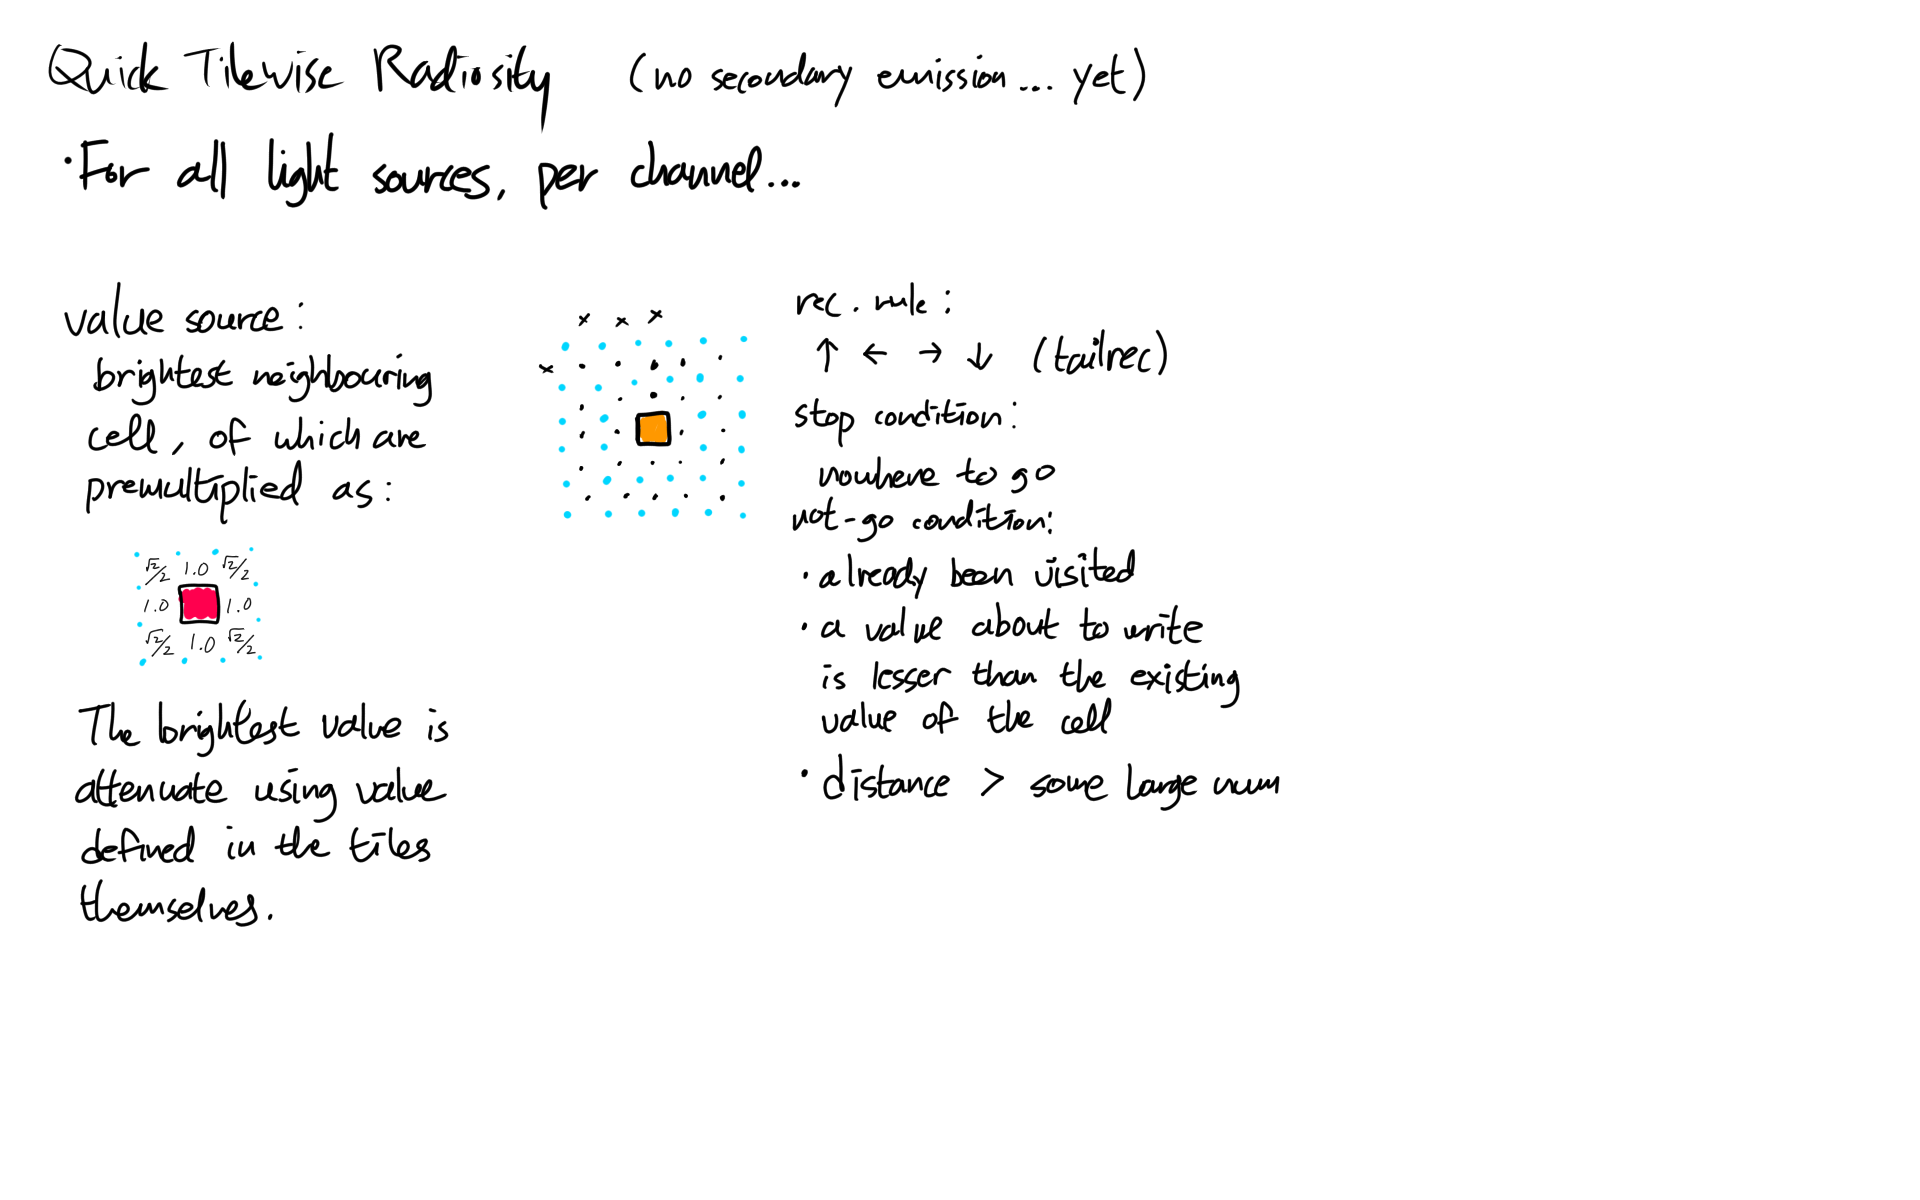 Quick Tilewise Radiosity (no secondary emission... yet)
· For all light sources, per channel...
value source:
brightest neighbouring
cell, of which are
premultiplied as:
√2/2 1.0 √2/2
1.0 1.0
√2/2 1.0 √2/2
The brightest value is
attenuate using value
defined in the tiles
themselves.
x x x
x
rec. rule:
↑ ← → ↓ (tailrec)
stop condition:
nowhere to go
not-go condition:
· already been visited
· a value about to write
is lesser than the existing
value of the cell
· distance > some large num